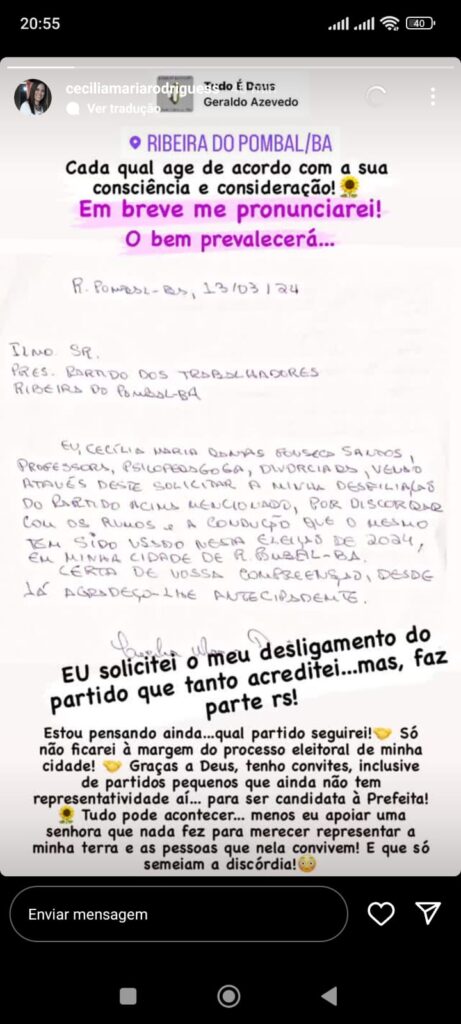 20:55
40
ceciliamariarodriguess
Tudo É Deus
Geraldo Azevedo
Ver tradução
RIBEIRA DO POMBAL/BA
Cada qual age de acordo com a sua
consciência e consideração!🌻
Em breve me pronunciarei!
O bem prevalecerá...
R. POMBAL-BA, 13/03/24
ILMO SR.
PRES. PARTIDO DOS TRABALHADORES
RIBEIRA DO POMBAL-BA
EU, CECÍLIA MARIA DANTAS FONSECA SANTOS,
PROFESSORA, PSICOPEDAGOGA, DIVORCIADA, VENHO
ATRAVÉS DESTE SOLICITAR A MINHA DESFILIAÇÃO
DO PARTIDO ACIMA MENCIONADO, POR DISCORDAR
COM OS RUMOS E A CONDUÇÃO QUE O MESMO
TEM SIDO USADO NESTA ELEIÇÃO DE 2024,
EM MINHA CIDADE DE R.
CERTA DE VOSSA COMPREENSÃO, DESDE
JÁ AGRADEÇO-LHE ANTECIPADENTE.
EU solicitei o meu desligamento do
partido que tanto acreditei...mas, faz
parte rs!
Estou pensando ainda...qual partido seguirei!🤝 Só
não ficarei à margem do processo eleitoral de minha
cidade! 🤝 Graças a Deus, tenho convites, inclusive
de partidos pequenos que ainda não tem
representatividade aí... para ser candidata à Prefeita!
🌻 Tudo pode acontecer... menos eu apoiar uma
senhora que nada fez para merecer representar a
minha terra e as pessoas que nela convivem! E que só
semeiam a discórdia!😳
Enviar mensagem